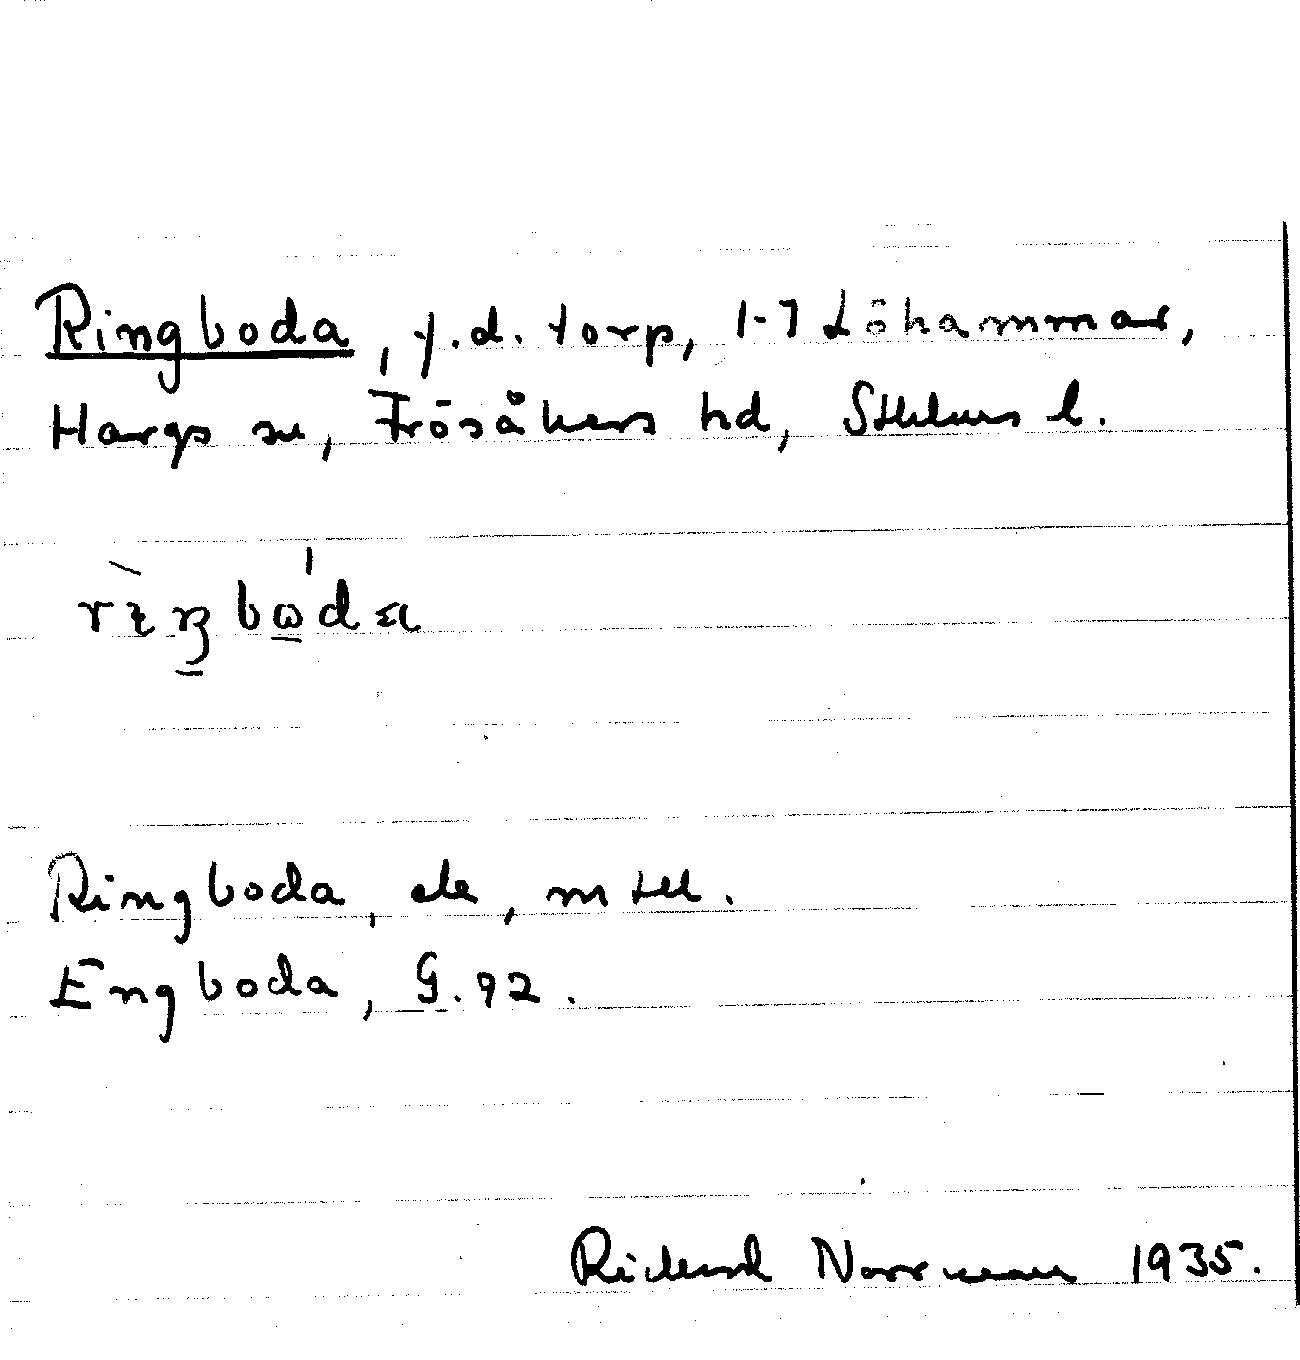 Ringboda, f.d. torp, 1-7 Löhammar,
Hargs sn, Frösåkers hd, Sthlms l.
Ringboda, ek, m
Engboda, G.92.
Rickard Norrman 1935.